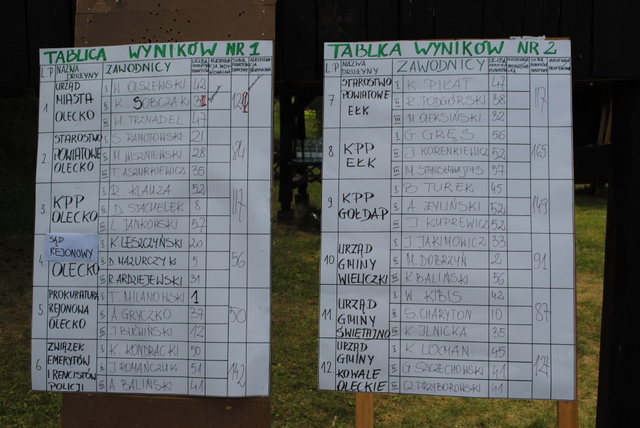 TABLICA WYNIKÓW NR 1
L.P NAZWA DRUŻYNY ZAWODNICY
1. URZĄD MIASTA OLECKO
I H. OLSZEWSKI 42
II K. SOBCZAK
III H. TRZNADEL 47
2. STAROSTWO POWIATOWE OLECKO 84
I S. RAMOTOWSKI 21
II M. WISZNIEWSKI 28
III T. ASZURKIEWICZ 35
3. KPP OLECKO 117
I R. KLAUZA 52
II D. STACHELEK 8
III L. JANKORSKI 57
4. SĄD REJONOWY OLECKO 56
I K. LESZCZYŃSKI 20
II D. MAZURCZYK 5
III R. ARDZIEJEWSKI 31
5. PROKURATURA REJONOWA OLECKO 50
I T. MILANOWSKI 1
II A. GRYCZKO 37
III J. BUCHIŃSKI 12
6. ZWIĄZEK EMERYTÓW I RENCISTÓW POLICJI 142
I K. KONDRACKI 50
II J. ROMAŃCZUK 51
III A. BALIŃSKI 41
TABLICA WYNIKÓW NR 2
L.P NAZWA DRUŻYNY ZAWODNICY
7. STAROSTWO POWIATOWE EŁK 117
I K. PIŁAT 47
II R. PODGÓRSKI 38
III M. OLEKSIŃSKI 32
8. KPP EŁK 165
I G. GRĘŚ 56
II J. KORENKIEWICZ 52
III M. STANISŁAWAJTYS 57
9. KPP GOŁDAP 149
I B. TUREK 45
II A. ŻYLIŃSKI 52
III J. KUPREWICZ 52
10. URZĄD GMINY WIELICZKI 91
I J. JAKIMOWICZ 33
II M. DOBRZYŃ 2
III K. BALIŃSKI 56
11. URZĄD GMINY ŚWIĘTAJNO 87
I W. KIBIS 42
II S. CHARYTON 10
III K. ILNICKA 35
12. URZĄD GMINY KOWALE OLECKIE 127
I K. LOCMAN 45
II G. SZCZECHOWSKI 41
III CZ. PRZYBOROWSKI 41